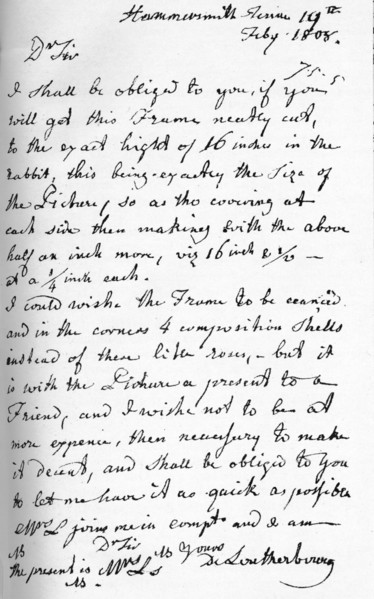 Hammersmith Terrace 19th
Feby. 1808.
Dr Sir
I shall be obliged to you, if you
will get this Frame neatly cut,
to the exact hight of 16 inches in the
rabbit, this being exactly the Size of
the Picture, so as the covering at
each side then making with the above
half an inch more, viz 16 inch & 1/2 —
at a 1/4 inch each.
I could wishe the Frame to be
and in the corners 4 composition Shells
instead of these little roses, — but it
is with the Picture a present to a
Friend, and I wishe not to be at
more expence, then necessary to make
it decent, and shall be obligd to you
to let me have it as quick as possible
Mrs L joins me in compts and I am
Dr Sir
Yours
NB
the present is Mrs L's
NB
De Loutherbourg